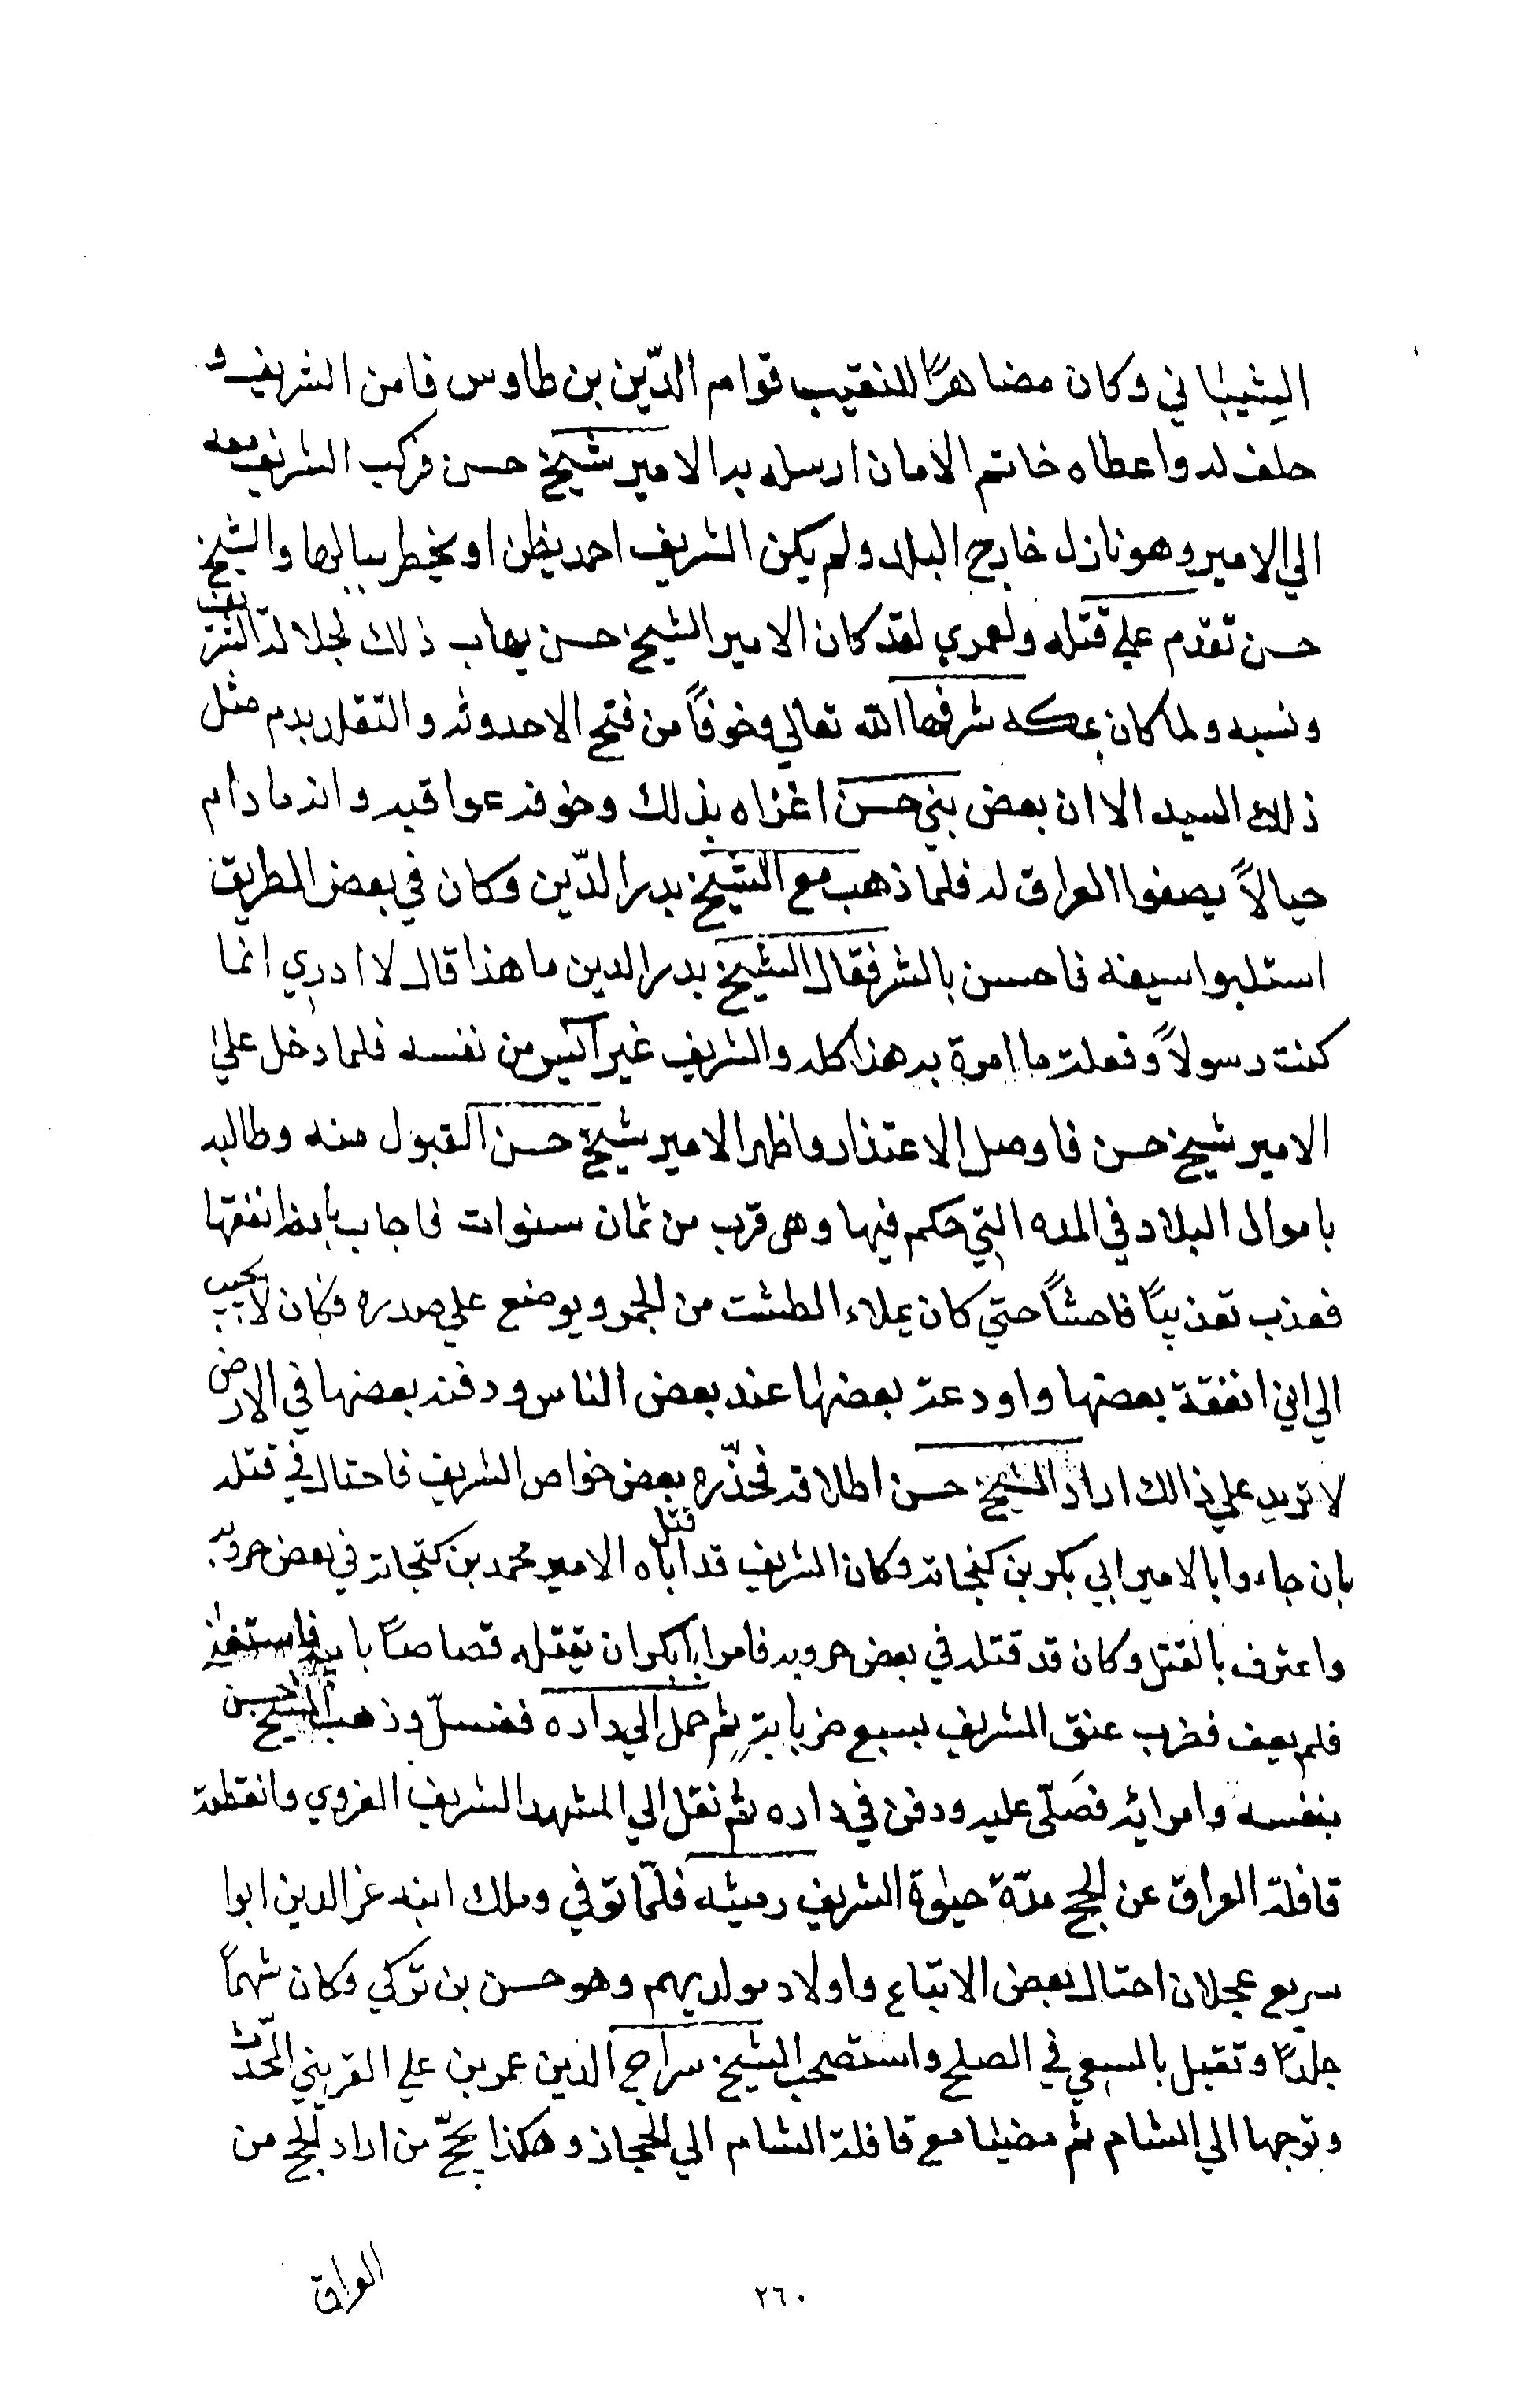 الشيباني وكان مضاهرًا للنقيب قوام الدّين بن طاوس فامن الشريف و
حلف له واعطاه خاتم الامان ارسله به الامير شيخ حسن فركب الشريف معه
الي الامير وهو نازل خارج البلد ولم يكن الشريف احمد يظن او يخطر ببالها والشيخ
حسن تقدم علي قتله ولعمري لقد كان الامير الشيخ حسن يهاب ذلك لجلالة الشريف
ونسبه ولما كان بمكه شرفها الله تعالي وخوفاً من فتح الاحدوثه والتقلد بدم مثل
ذلك السيد الا ان بعض بني حسن اغراه بذلك وخوفه عواقبه وانه ما دام
حيا لاً يصفوا العراق له فلما ذهب مع الشيخ بدر الدّين وكان في بعض الطريق
استلبوا سيفه فاحسن بالشر فقال الشيخ بدر الدين ما هذا قال لا ادري انما
كنت رسولاً وفعلت ما امرة به هذا كله والشريف غير آئيس من نفسه فلما دخل علي
الامير شيخ حسن فاوصل الاعتذار واظهر الامير شيخ حسن القبول منه وطالبه
باموال البلاد في المده التي حكم فيها وهي قرب من ثمان سنوات فاجاب بانه انفقها
فعذب تعذيبًا فاحشًا حتي كان يملاء الطشت من الجمر ويوضع علي صدره فكان لا يجيب
الي اني انفقة بعضها واودعة بعضها عند بعض الناس ودفنه بعضها في الارض
لا تزيد علي ذالك اراد الشيخ حسن اطلاقه فحذّره بعض خواص الشريف فاحتال في قتله
بان جاءوا بالامير ابي بكر بن كنجاته وكان الشريف قد قتل اباه الامير محمد بن كنجاته في بعض حروبه
واعترف بالقتل وكان قد قتله في بعض حروبه فامر ابابكر ان يقتله قصاصًا بابيه فاستعفي
فلم يعف فضرب عنق الشريف بسبع ضربا بة ثم حمل الي داره فغسلّ وذهب الشيخ حسن
بنفسه وامرائه فصَلّى عليه ودفن في داره ثم نقل الي المشهد الشريف الغروي وانقطعة
قافلة العراق عن الحج مدّة حيٰوة الشريف رميثه فلمّا توفي وملك ابنه عز الدين ابوا
سريع عجلان احتال بعض الاتباع واولاد مولديهم وهو حسن بن تركي وكان شهماً
جلدًا وتقبل بالسعي في الصلح واستصحب الشيخ سراج الدين عمر بن علي القزيني المحّدث
وتوجها الي الشام ثم مضيا مع قافلة الشام الي الحجاز وهكذا يحجّ من اراد الحج من
العراق
٢٦٠